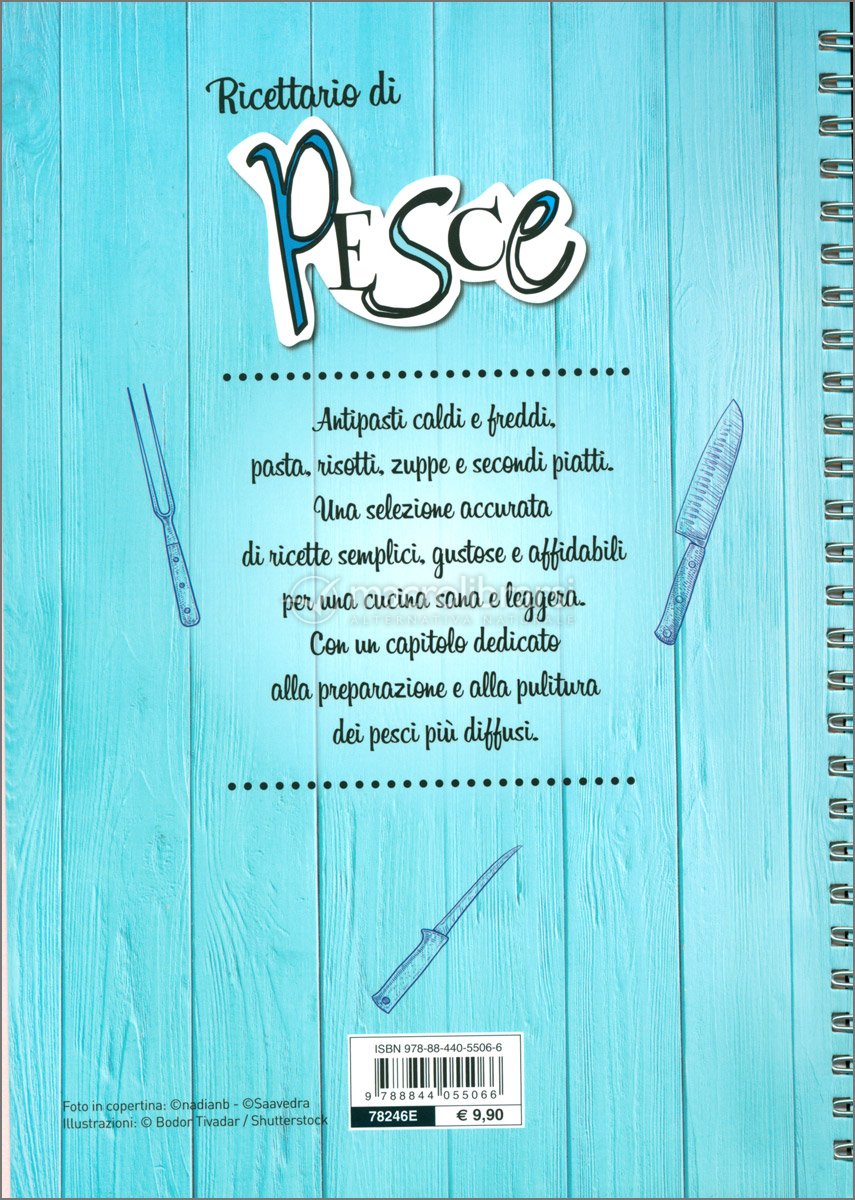 Ricettario di
PESCe
Antipasti caldi e freddi,
pasta, risotti, zuppe e secondi piatti.
Una selezione accurata
di ricette semplici, gustose e affidabili
macrolibrarsi
per una cucina sana e leggera.
ALTERNATIVA NATURALE
Con un capitolo dedicato
alla preparazione e alla pulitura
dei pesci più diffusi.
ISBN 978-88-440-5506-6
9 788844 055066
78246E € 9,90
Foto in copertina: ©nadianb - ©Saavedra
Illustrazioni: © Bodor Tivadar / Shutterstock